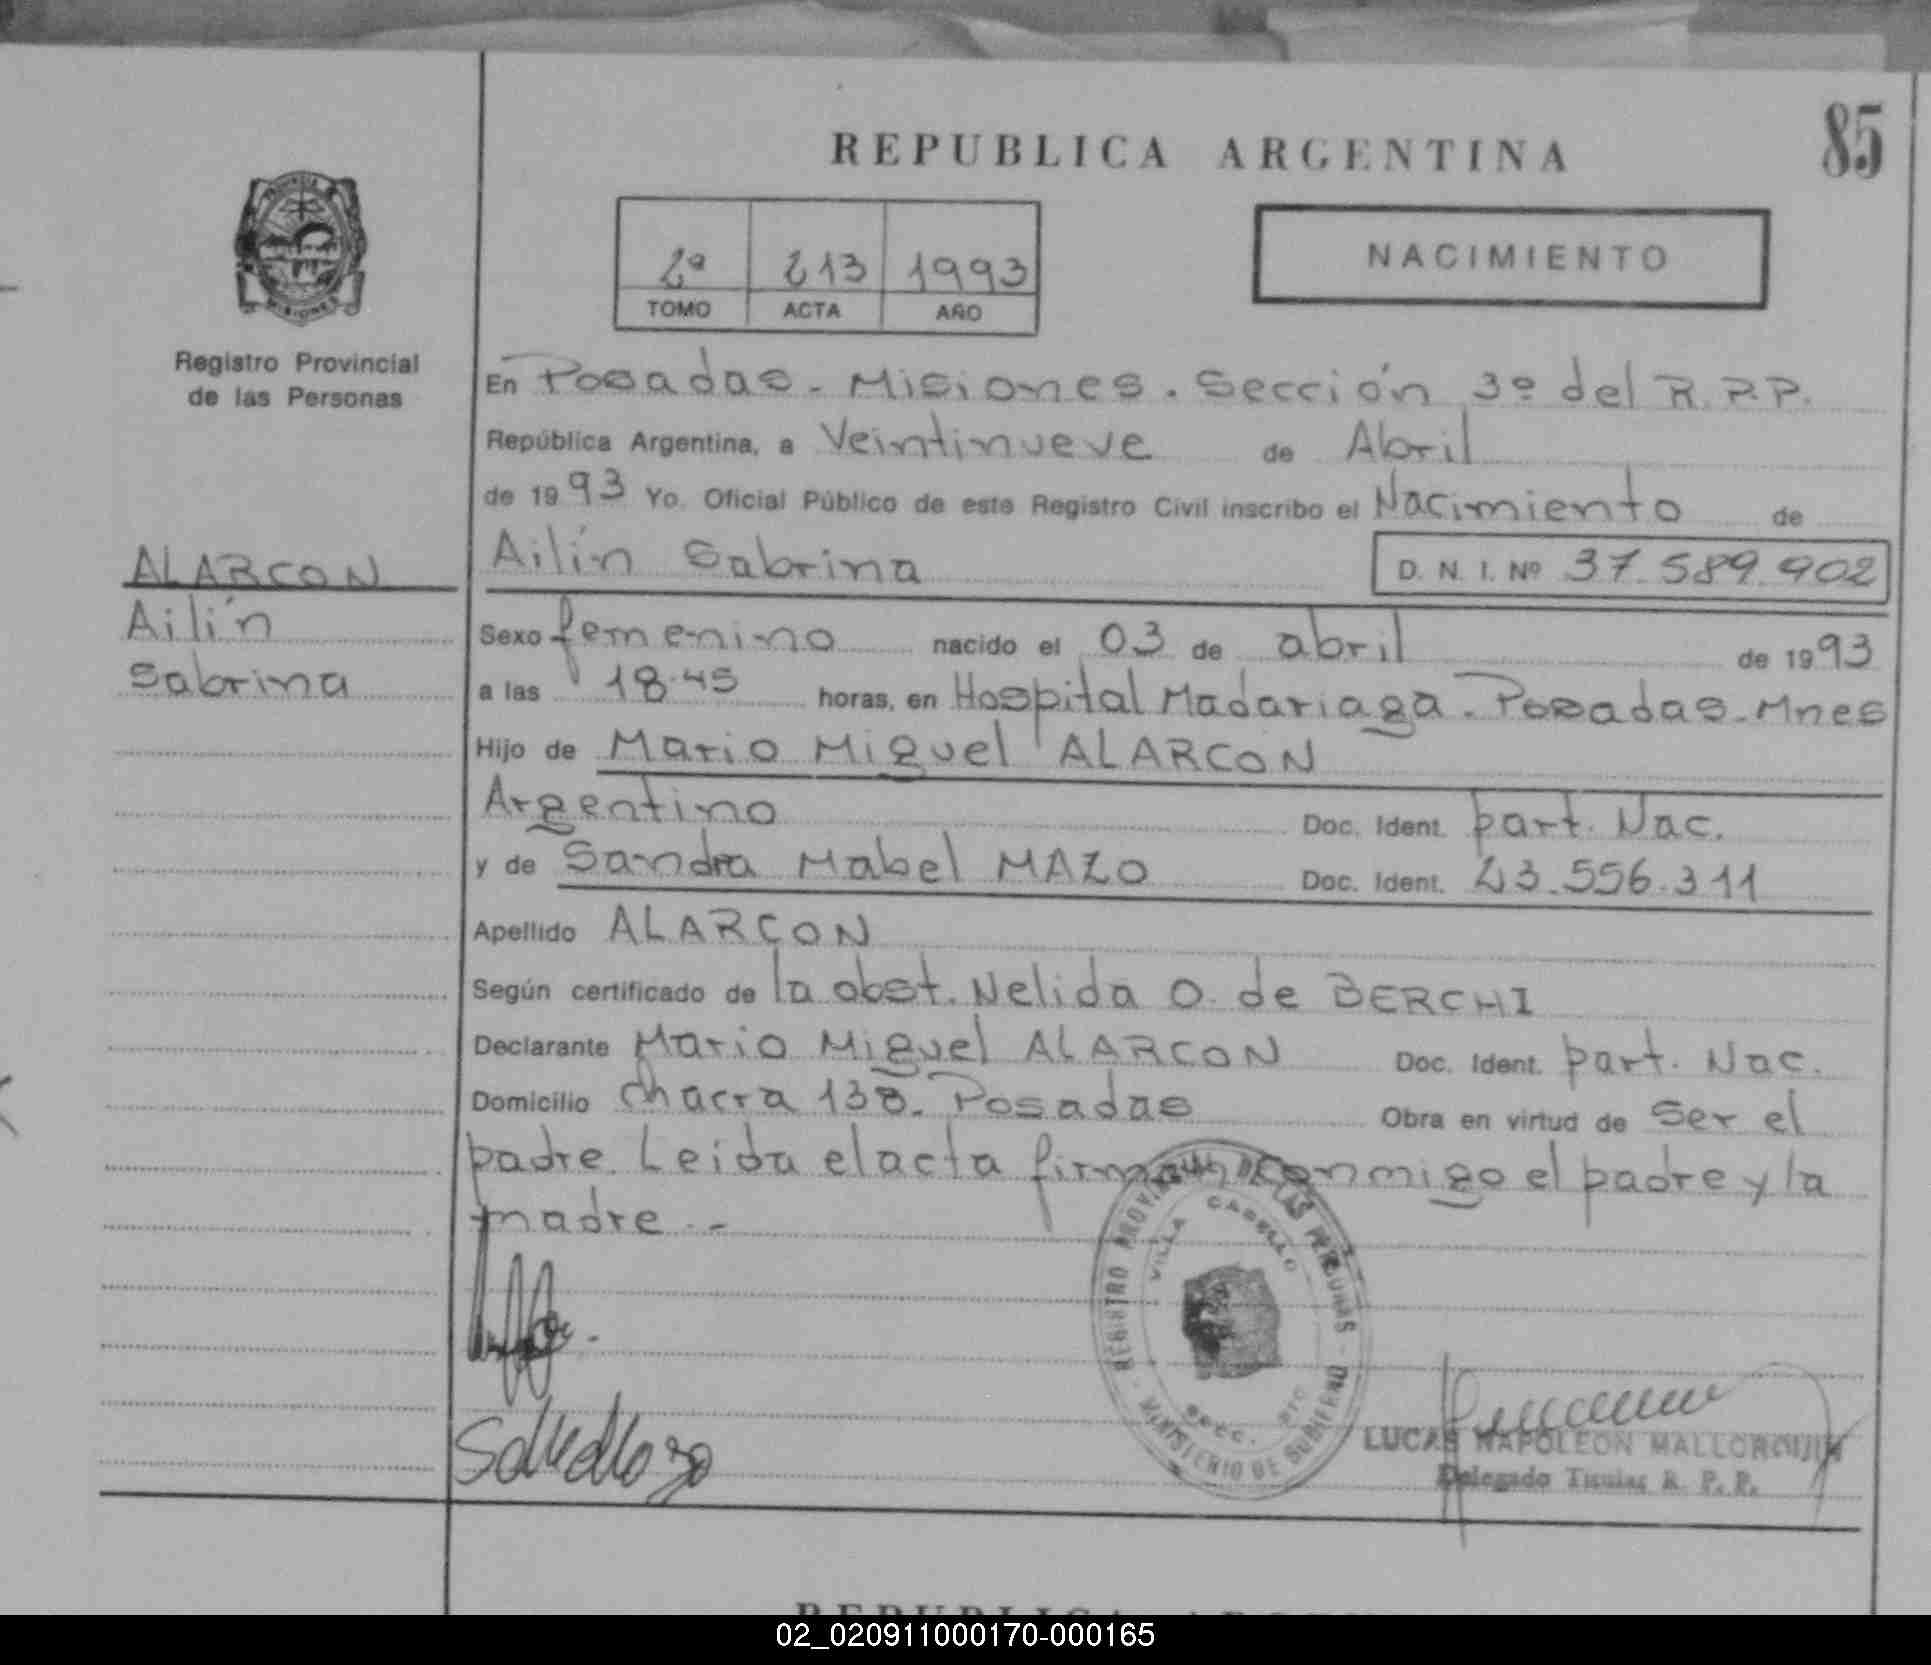 85
REPUBLICA ARGENTINA
NACIMIENTO
2ª 213 1993
TOMO ACTA AÑO
PROVINCIA DE MISIONES
Registro Provincial
de las Personas
ALARCON
Ailín
Sabrina
En Posadas - Misiones. Sección 3º del R.P.P.
República Argentina, a Veintinueve de Abril
de 1993 Yo. Oficial Público de este Registro Civil inscribo el Nacimiento de
Ailín Sabrina D. N. I. Nº 37.589.902
Sexo femenino nacido el 03 de abril de 1993
a las 18.45 horas, en Hospital Madariaga. Posadas - Mnes
Hijo de Mario Miguel ALARCON
Argentino Doc. Ident. part. Nac.
y de Sandra Mabel MAZO Doc. Ident. 23.556.311
Apellido ALARCON
Según certificado de la obst. Nelida O. de BERCHI
Declarante Mario Miguel ALARCON Doc. Ident. part. Nac.
Domicilio chacra 138. Posadas Obra en virtud de ser el
padre. Leida el acta firman conmigo el padre y la
madre.-
REGISTRO PROVINCIAL DE LAS PERSONAS - MINISTERIO DE GOBIERNO -
VILLA CABELLO
Secc.
LUCAS NAPOLEON MALLORQUIN
Delegado Titular R. P. P.
REPUBLICA
02_020911000170-000165